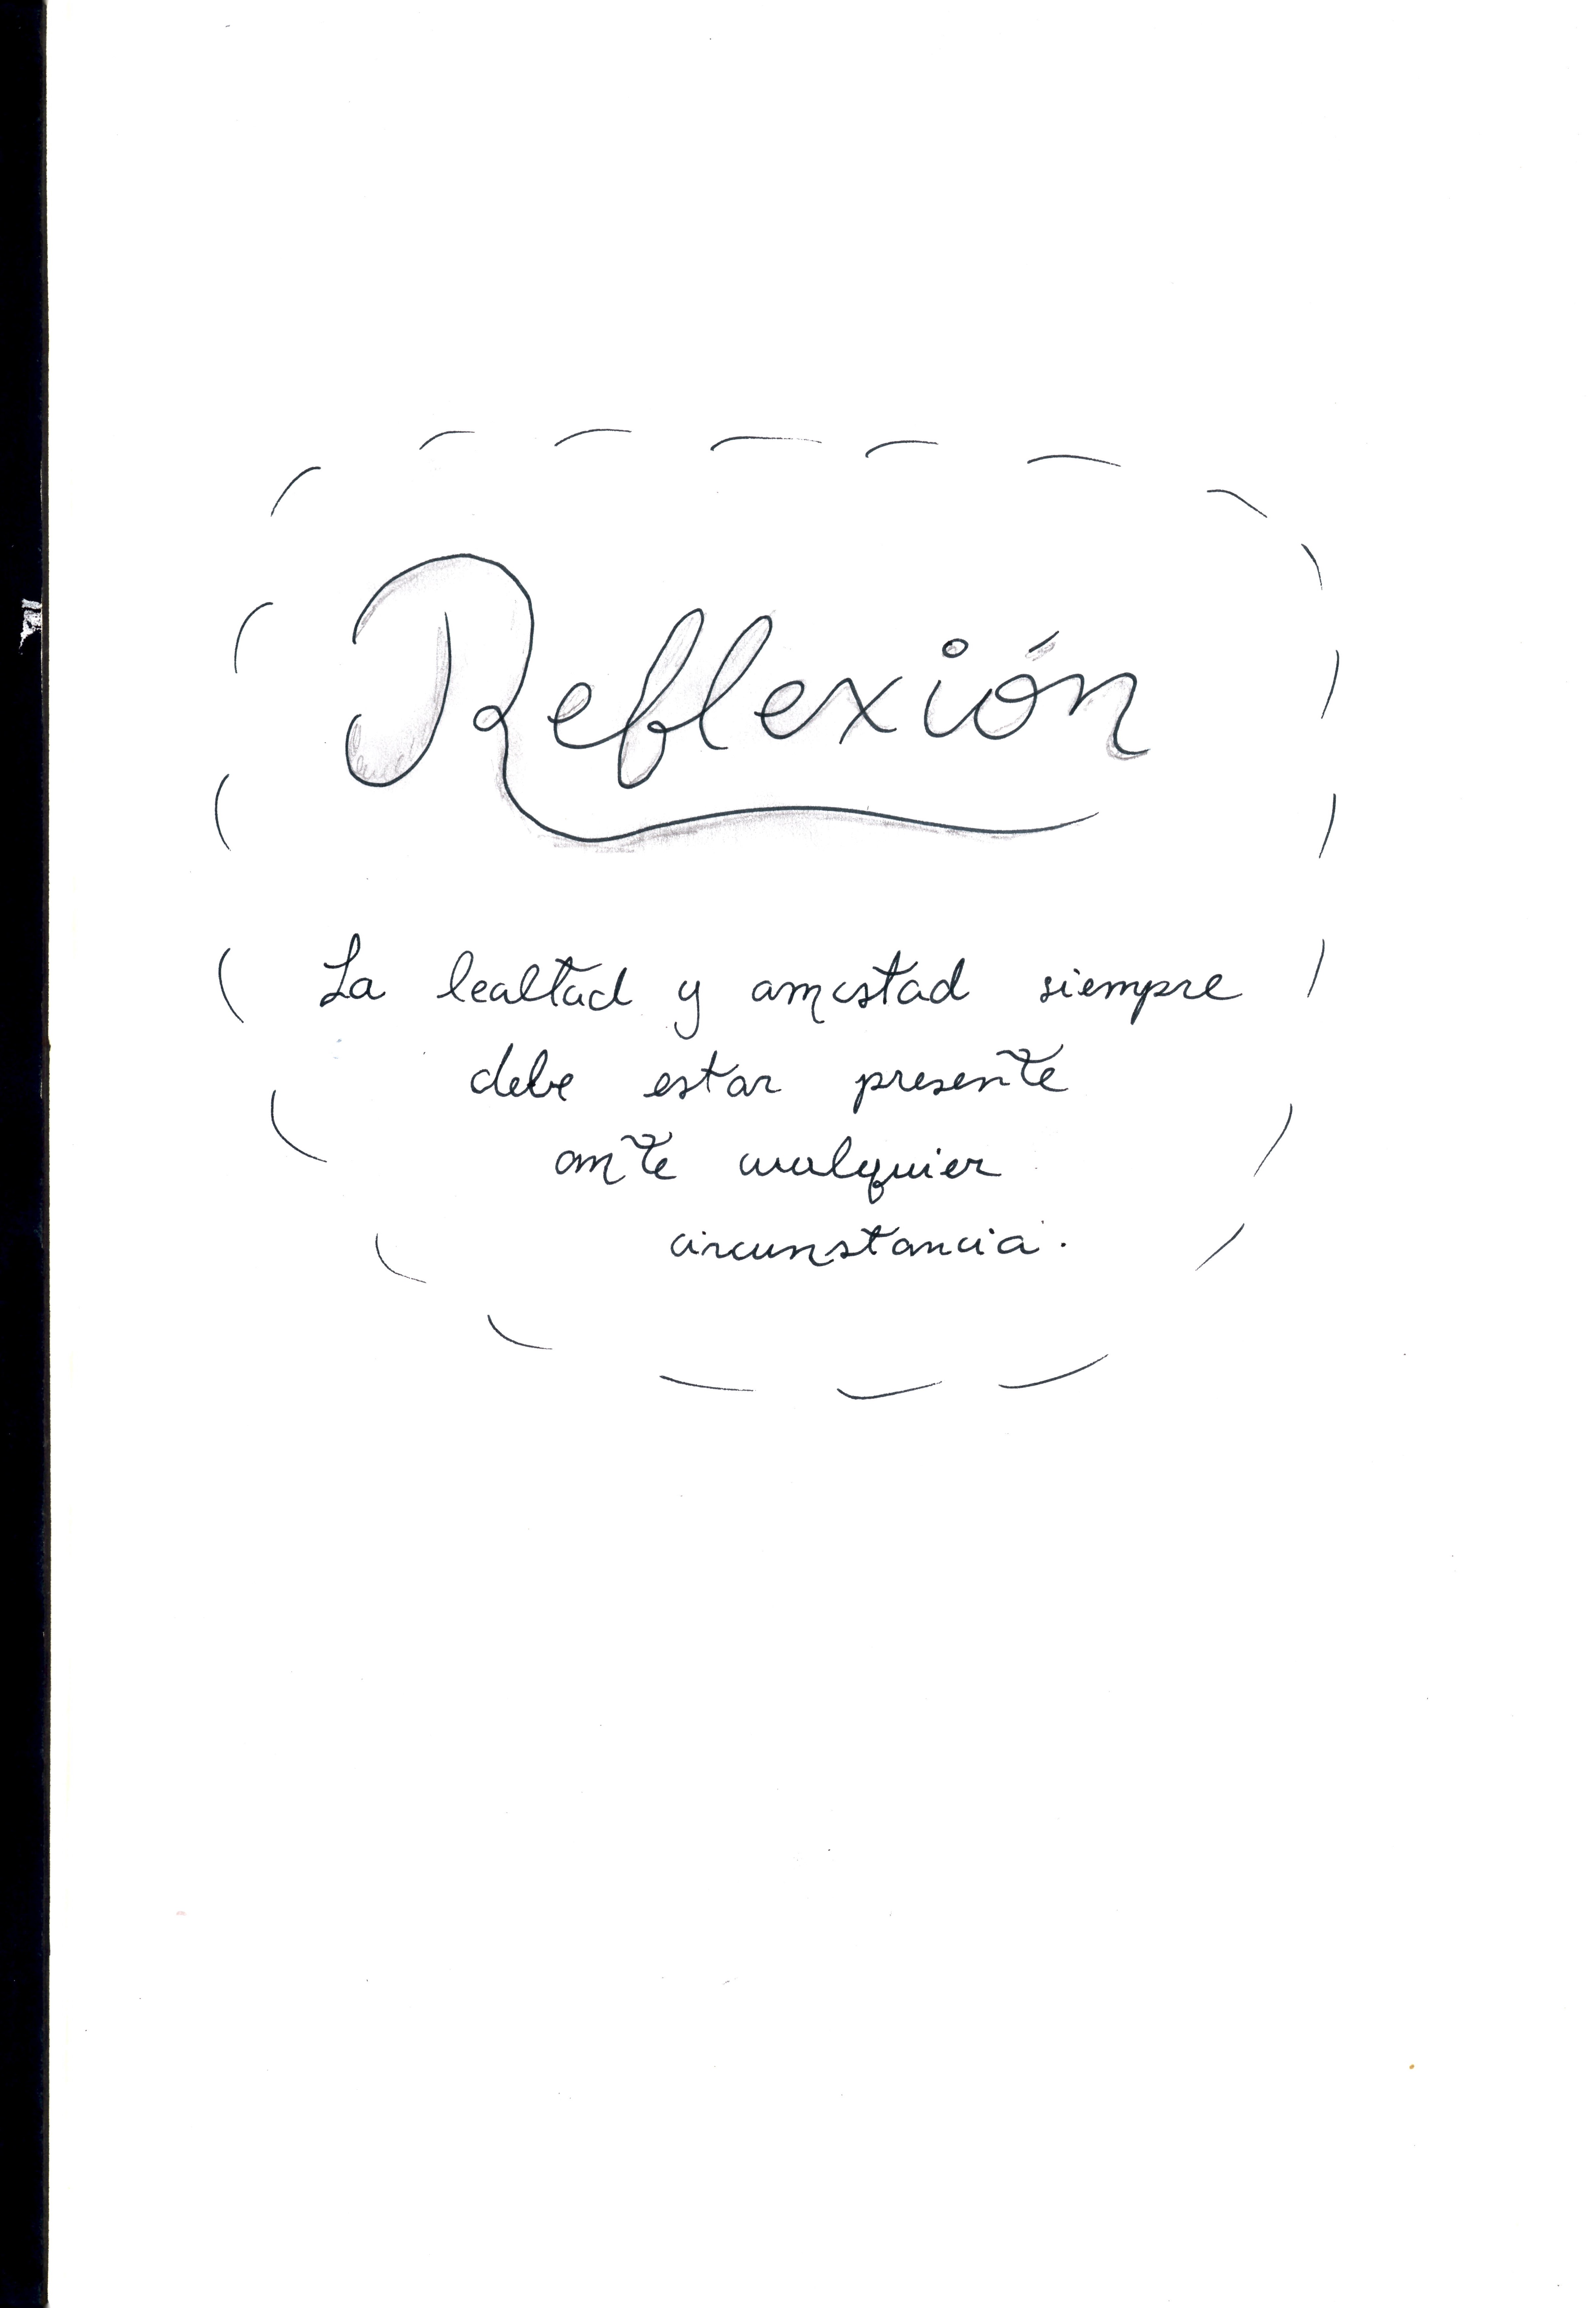 Reflexión
La lealtad y amistad siempre
debe estar presente
ante cualquier
circunstancia.